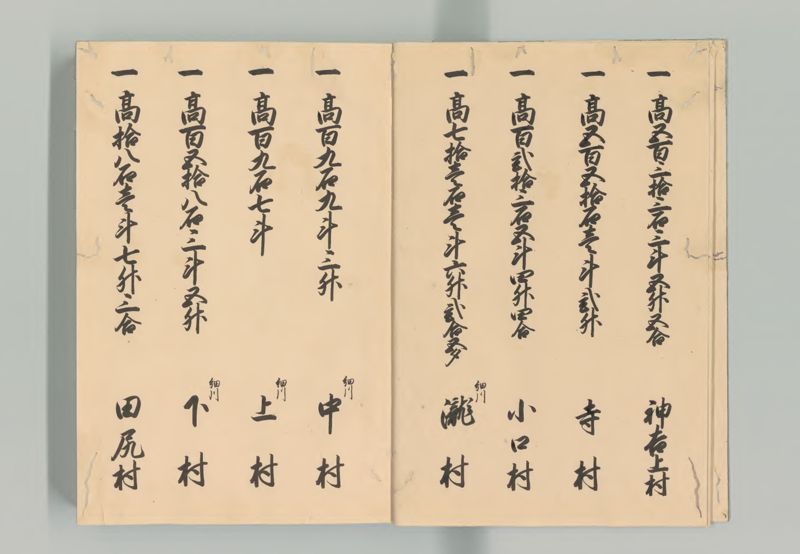 一 高五百三拾三石三斗五升五合 神吉上村
一 高五百五拾石壱斗弐升 寺村
一 高百弐拾三石五斗四升四合 小口村
一 高七拾壱石壱斗六升弐合五夕 細川 瀧村
一 高百九石九斗三升 細川 中村
一 高百九石七斗 細川 上村
一 高百五拾八石三斗五升 細川 下村
一 高拾八石壱斗七升三合 田尻村